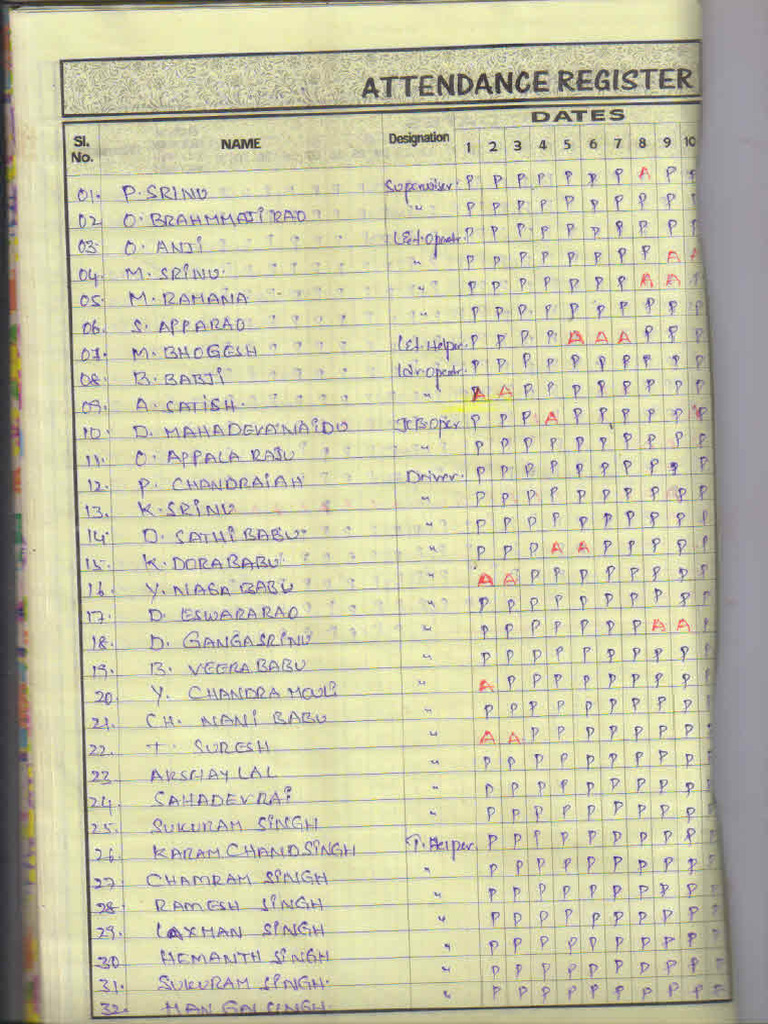 ATTENDANCE REGISTER
Sl. No. NAME Designation DATES
1 2 3 4 5 6 7 8 9 10
01. P. SRINU Supervisor P P P P P P P A P
02 O. BRAHMMAJI RAO " P P P P P P P P P
03 O. ANJI Operator P P P P P P P P P
04. M. SRINU. " P P P P P P P P A
05. M. RAMANA " P P P P P P P A A
06. S. APPARAO " P P P P P P P P P
07. M. BHOGESH Helper P P P P A A A P P
08. B. BABJI Operator P P P P P P P P P
09. A. SATISH. " A A P P P P P P P
10. D. MAHADEVA NAIDU JCB Oper P P P A P P P P P
11. O. APPALA RAJU " P P P P P P P P P
12. P. CHANDRAIAH Driver. P P P P P P P P P
13. K. SRINU " P P P P P P P P P
14. D. SATHI BABU. " P P P P P P P P P
15. K. DORABABU " P P P A A P P P P
16. Y. NAGA BABU " A A P P P P P P P
17. D. ESWARARAO " P P P P P P P P P
18. D. GANGASRINU " P P P P P P P A A
19. B. VEERA BABU " P P P P P P P P P
20 Y. CHANDRA MOULI " A P P P P P P P P
21. CH. NANI BABU " P P P P P P P P P
22. T. SURESH " A A P P P P P P P
23 AKSHAY LAL " P P P P P P P P P
24. SAHADEV RAI " P P P P P P P P P
25. SUKURAM SINGH " P P P P P P P P P
26 KARAM CHAND SINGH T. Helper. P P P P P P P P P
27 CHAMRAM SINGH " P P P P P P P P P
28. RAMESH SINGH " P P P P P P P P P
29. LAXMAN SINGH " P P P P P P P P P
30 HEMANTH SINGH " P P P P P P P P P
31. SUKURAM SINGH. " P P P P P P P P P
32. SINGH. " P P P P P P P P P